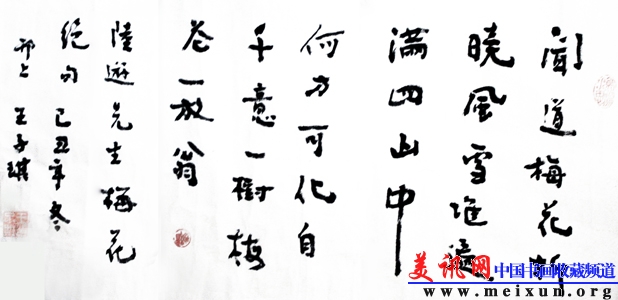 聞道梅花坼
曉風雪堆遍
滿四山中
何方可化自
千意一樹梅
花一放翁
陸遊先生梅花
絕句 己丑年冬
邗上 王子琪
美讯网 中国书画收藏频道
www.meixun.org